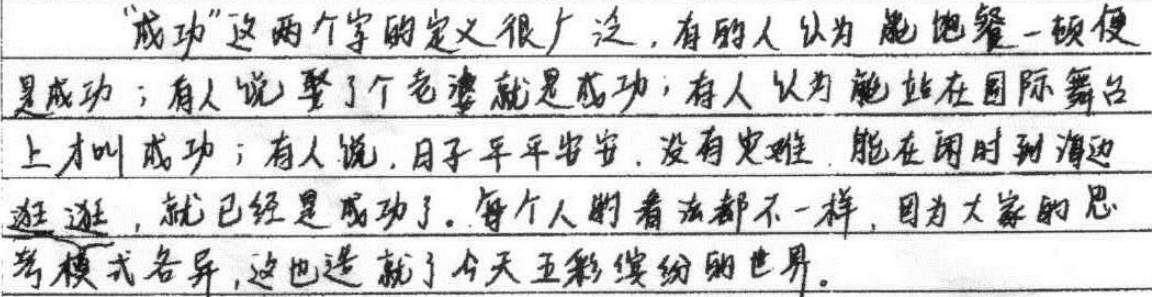 “成功”这两个字的定义很广泛，有的人认为能饱餐一顿便
是成功；有人说娶了个老婆就是成功；有人认为能站在国际舞台
上才叫成功；有人说，日子平平安安，没有灾难，能在闲时到海边
逛逛，就已经是成功了。每个人的看法都不一样，因为大家的思
考模式各异，这也造就了今天五彩缤纷的世界。